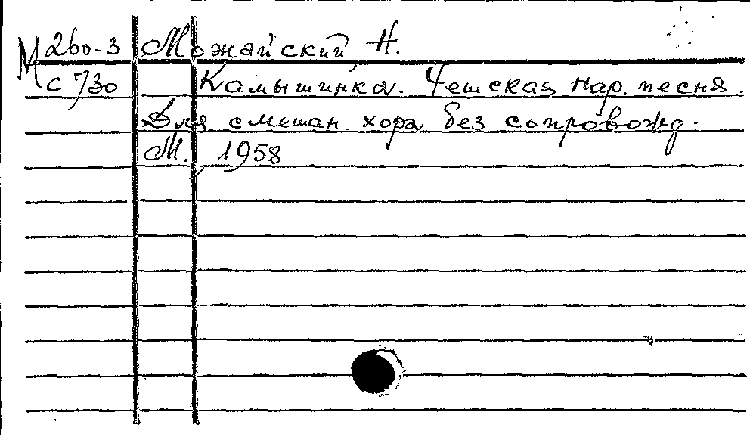 М 260-3 Можайский Н.
с 730 Камышинка. Чешская нар. песня.
Для смешан. хора без сопровожд.
М. 1958